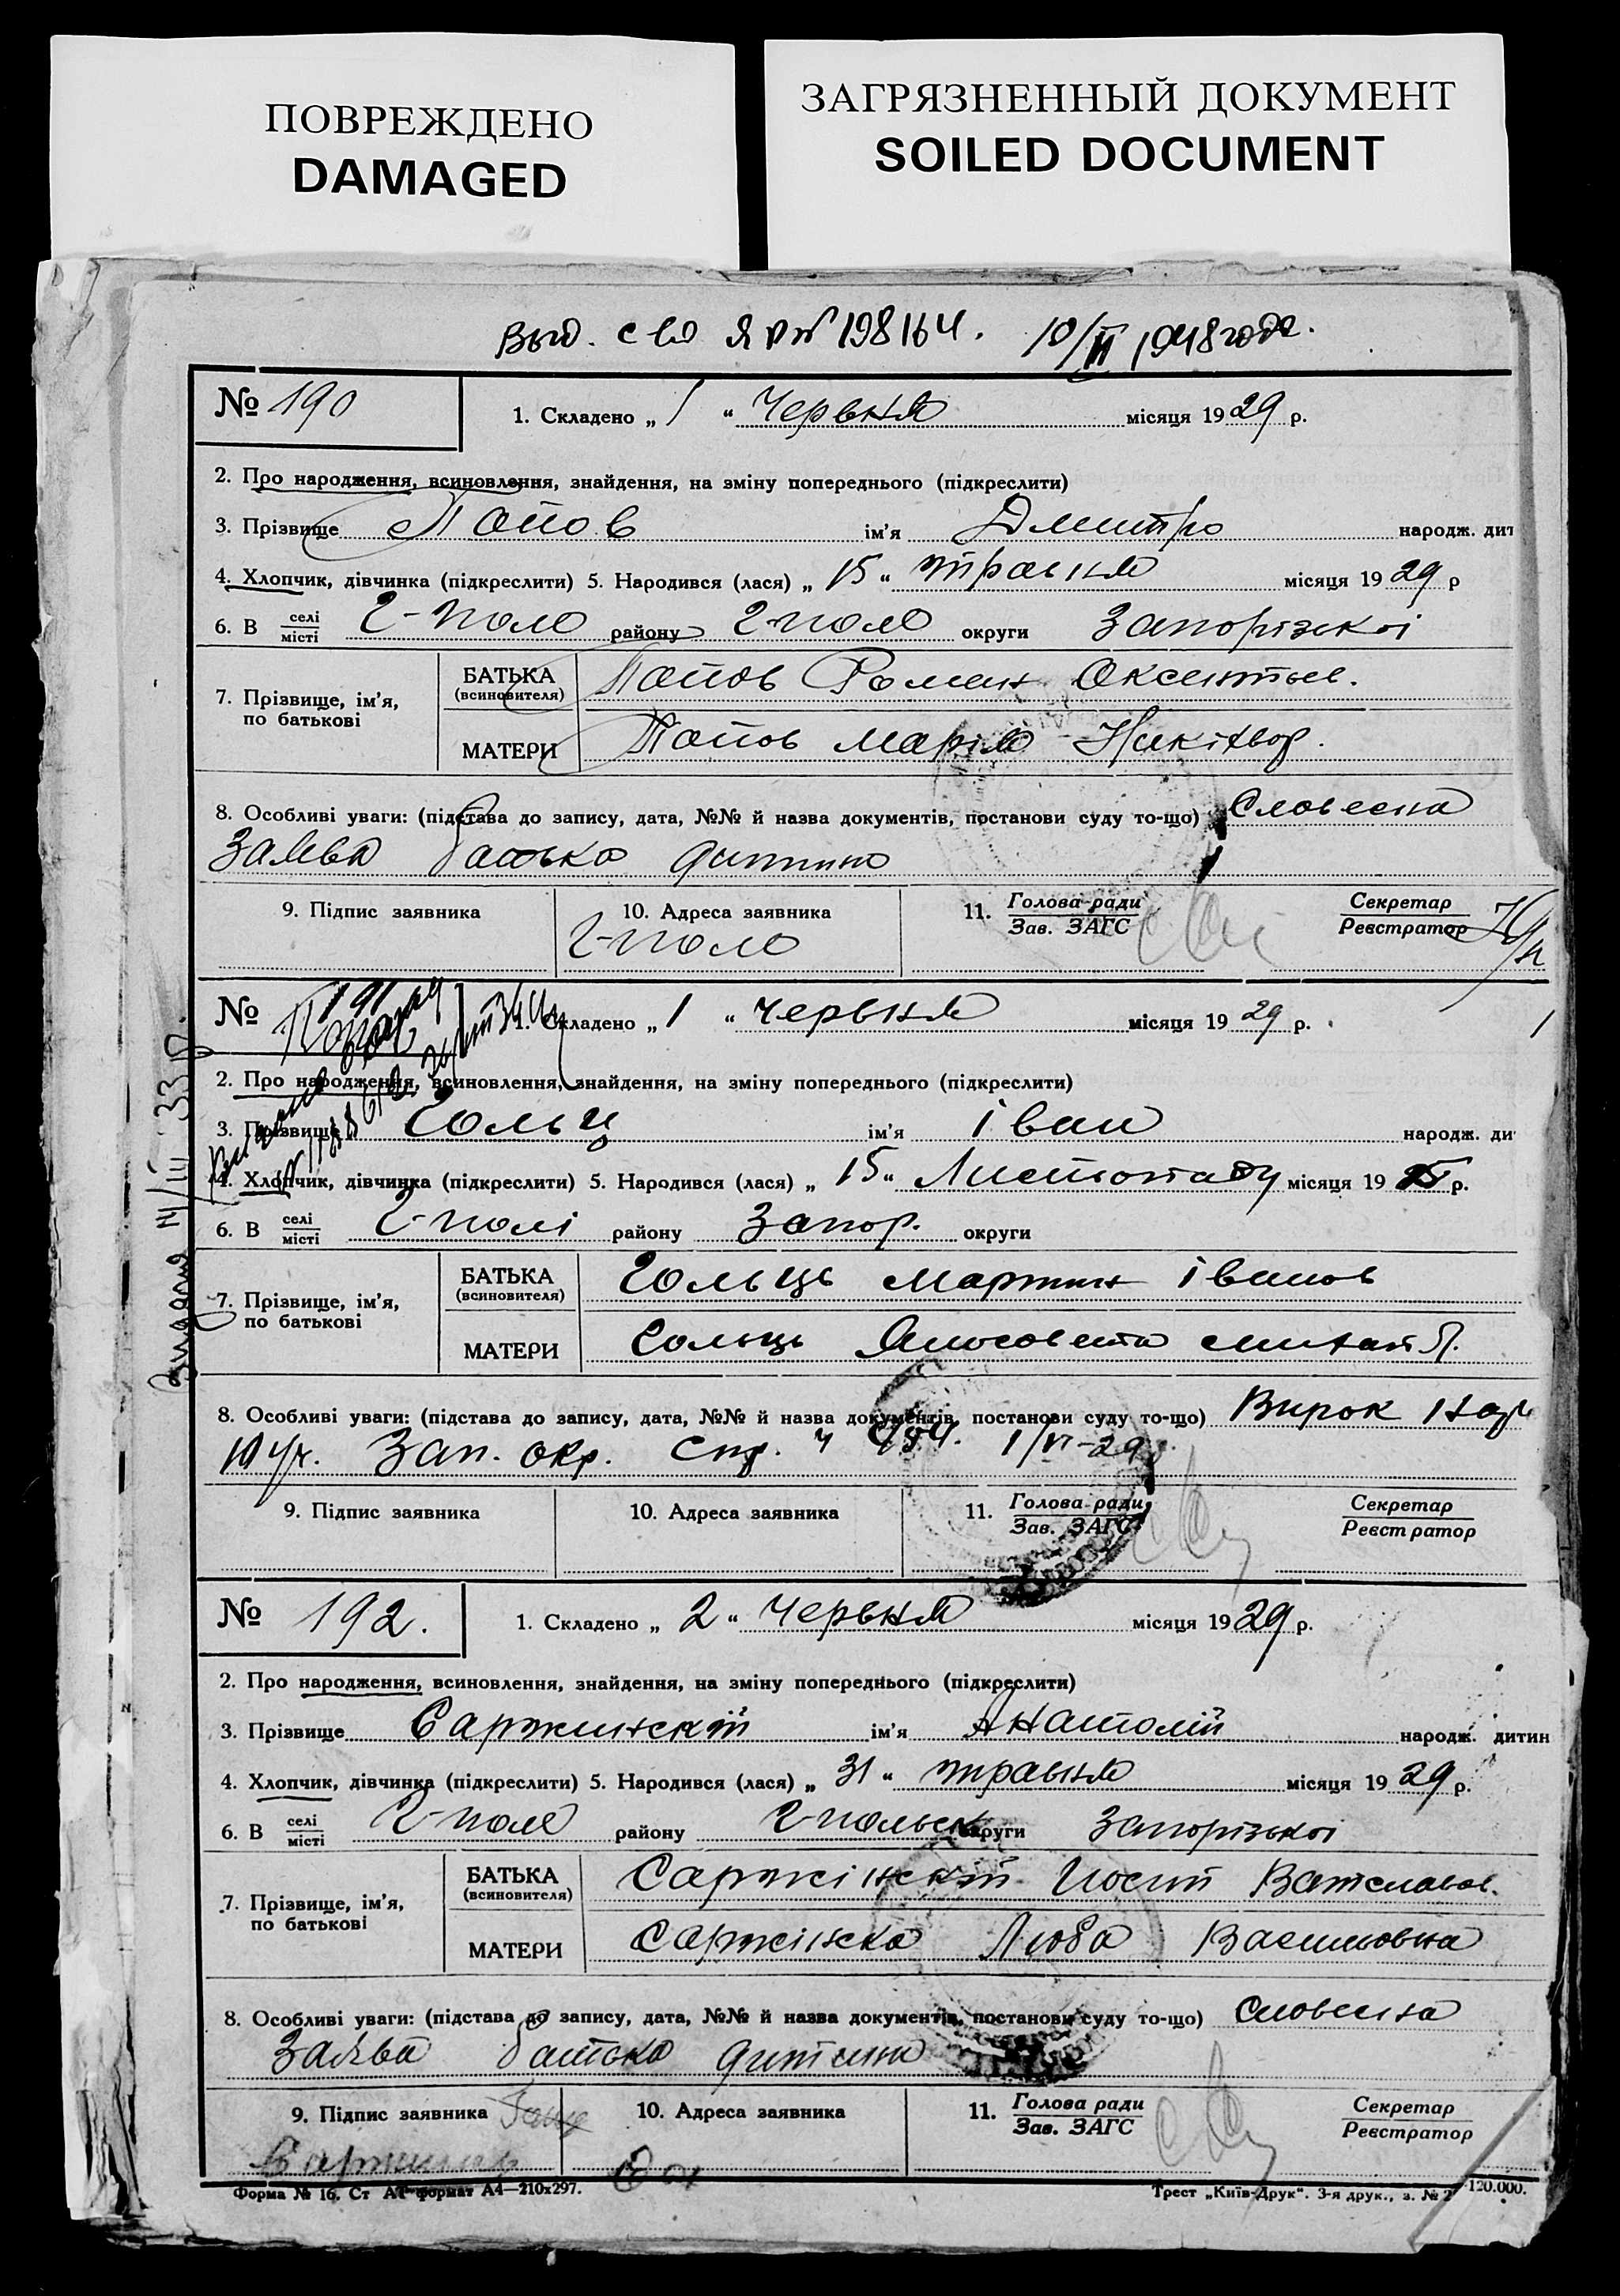 ПОВРЕЖДЕНО
DAMAGED
ЗАГРЯЗНЕННЫЙ ДОКУМЕНТ
SOILED DOCUMENT
Выд. с во Я № 198164. 10/II 1948 года.
№ 190
1. Складено „ 1 “ Червня місяця 1929 р.
2. Про народження, всиновлення, знайдення, на зміну попереднього (підкреслити)
3. Прізвище Попов ім’я Дмитро народж. дит
4. Хлопчик, дівчинка (підкреслити) 5. Народився (лася) „ 15 “ травня місяця 1929 р
6. В селі місті Г-Поле району Г-поле округи Запорізкоі
7. Прізвище, ім’я, по батькові
БАТЬКА (всиновителя) Попов Роман Оксентьев.
МАТЕРИ Попов Марія
8. Особливі уваги: (підстава до запису, дата, №№ й назва документів, постанови суду то-що) Словесна
Заява батька дитини
9. Підпис заявника
10. Адреса заявника
Г-поле
11. Голова ради Зав. ЗАГС
Секретар Реєстратор
№ 191
1. Складено „ 1 “ Червня місяця 1929 р.
2. Про народження, всиновлення, знайдення, на зміну попереднього (підкреслити)
3. Прізвище Гольц ім’я Іван народж. ди
4. Хлопчик, дівчинка (підкреслити) 5. Народився (лася) „ 15 “ Листопаду місяця 19 р.
6. В селі місті Г-полі району Запор. округи
7. Прізвище, ім’я, по батькові
БАТЬКА (всиновителя) Гольць Мартин Іванов
МАТЕРИ Гольць
8. Особливі уваги: (підстава до запису, дата, №№ й назва документів, постанови суду то-що) Вирок
Зап. окр. 1/VI-29
9. Підпис заявника
10. Адреса заявника
11. Голова ради Зав. ЗАГС
Секретар Реєстратор
№ 192.
1. Складено „ 2 “ Червня місяця 1929 р.
2. Про народження, всиновлення, знайдення, на зміну попереднього (підкреслити)
3. Прізвище Саржинскій ім’я Анатолій народж. дитин
4. Хлопчик, дівчинка (підкреслити) 5. Народився (лася) „ 31 “ травня місяця 1929 р.
6. В селі місті Г-поле району Г-польск округи Запорізькоі
7. Прізвище, ім’я, по батькові
БАТЬКА (всиновителя) Саржінскій Иосип Ватславов.
МАТЕРИ Саржінска Люба Васильовна
8. Особливі уваги: (підстава до запису, дата, №№ й назва документів, постанови суду то-що) Словесна
Заява батька дитини
9. Підпис заявника
10. Адреса заявника
11. Голова ради Зав. ЗАГС
Секретар Реєстратор
Форма № 16. Ст формат А4—210х297.
Трест „Київ-Друк“. 3-я друк., з. № 2 120.000.